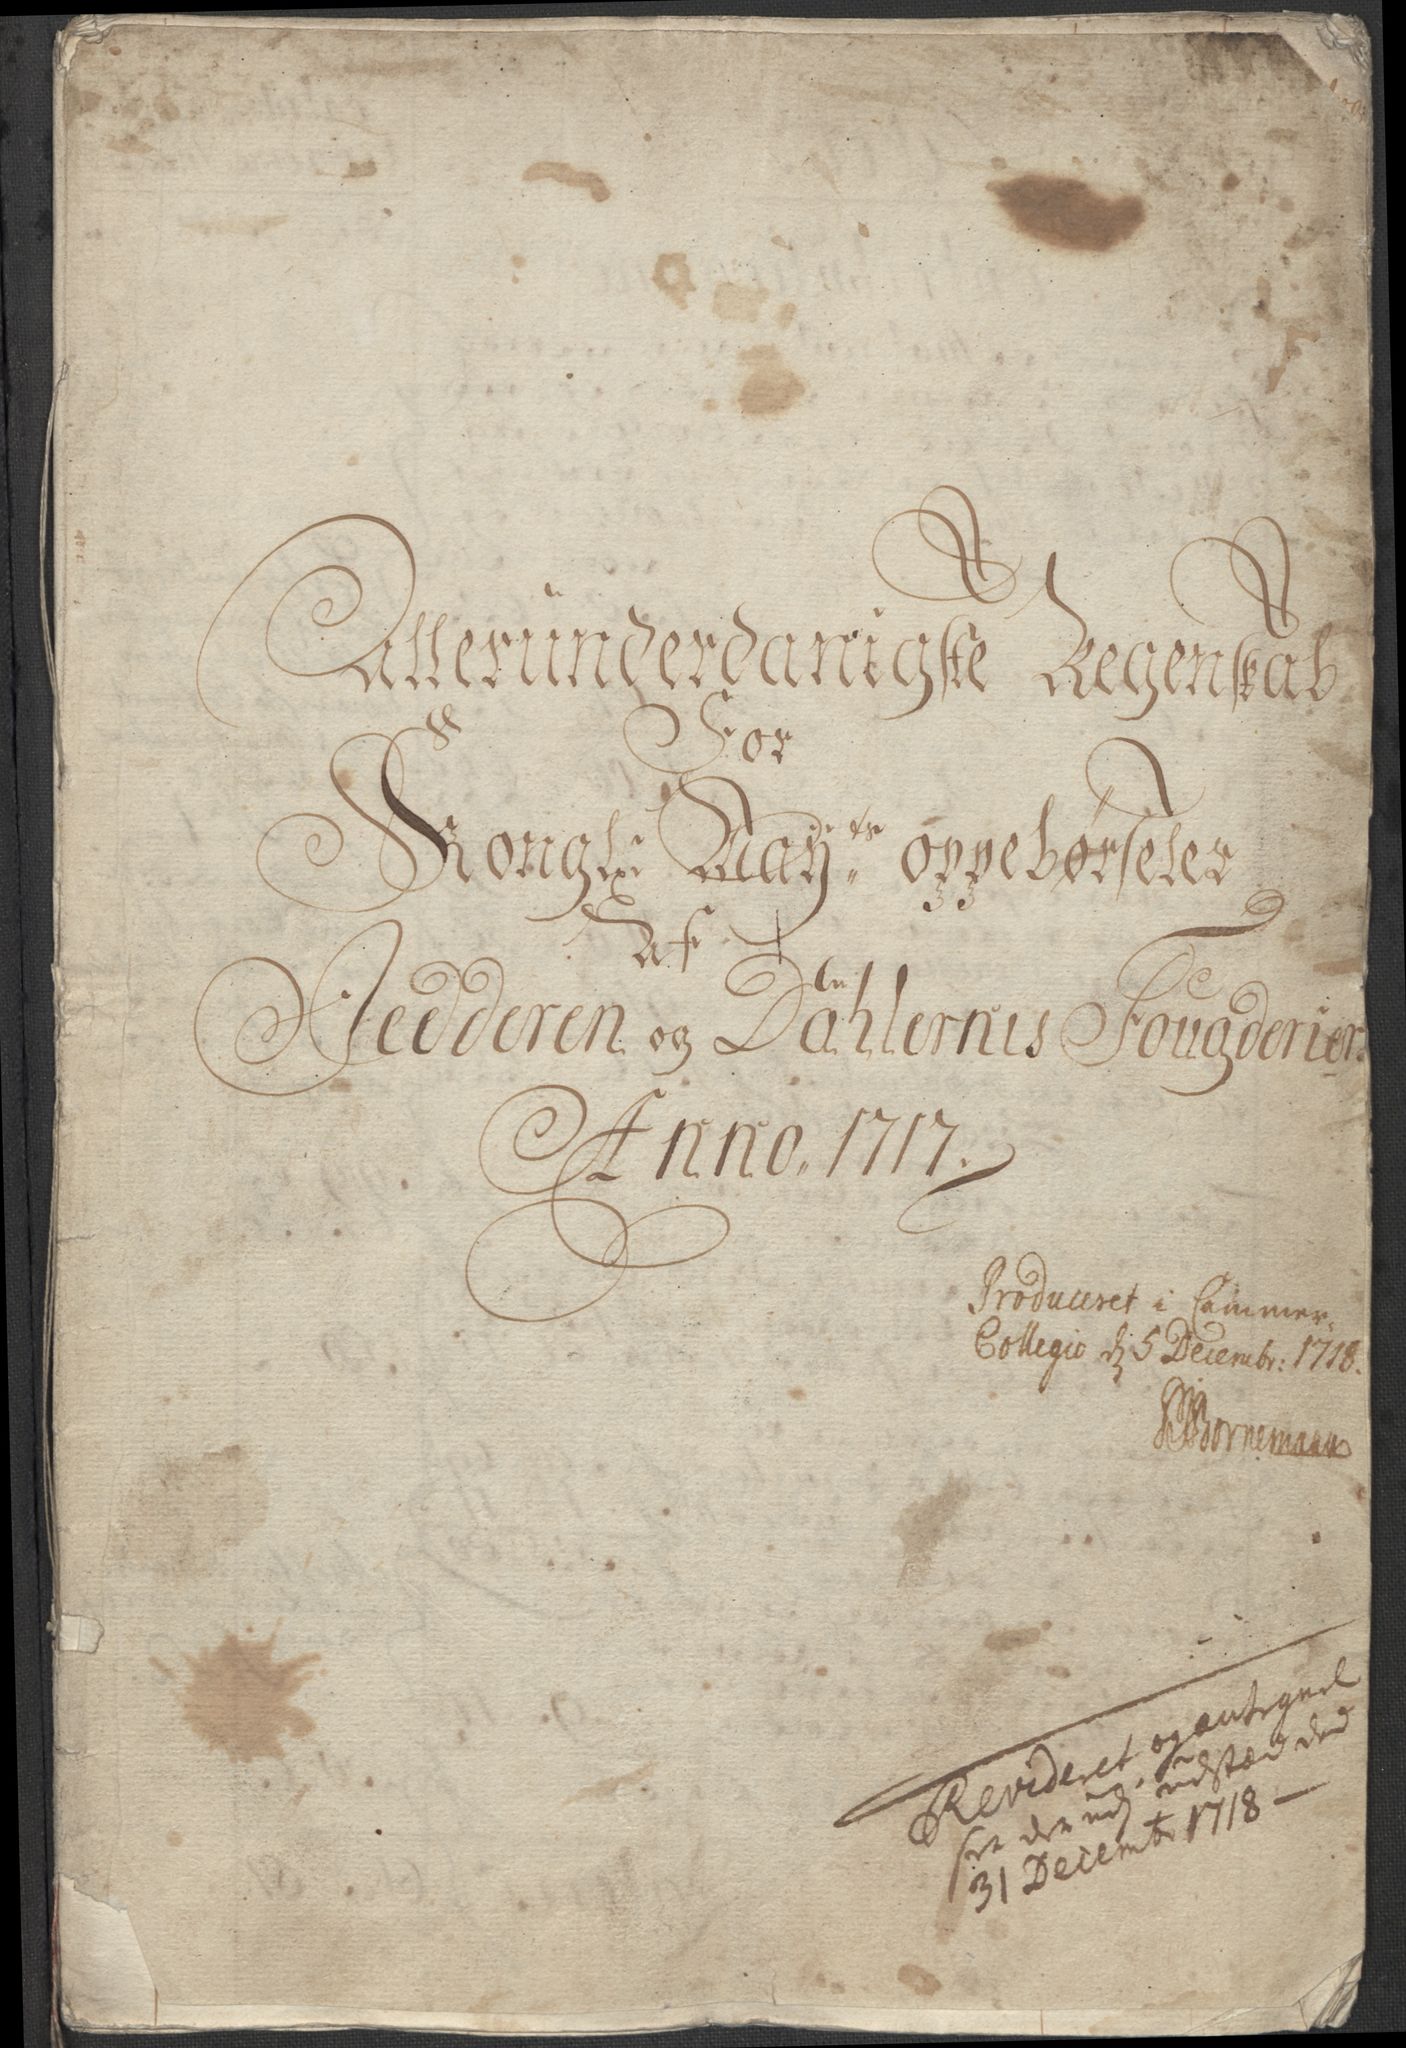 Alleründerdanigste Regenskab
For
Kongl: Maÿ:ts oppebørseler
Af
Jedderen og Dahlernis Fougderier.
Anno. 1717.
Produceret i Cammer-
Collegio d 5 Decembr: 1718.
Bornemann
Revideret og antegnel
der udstæd den
31 Decembr 1718